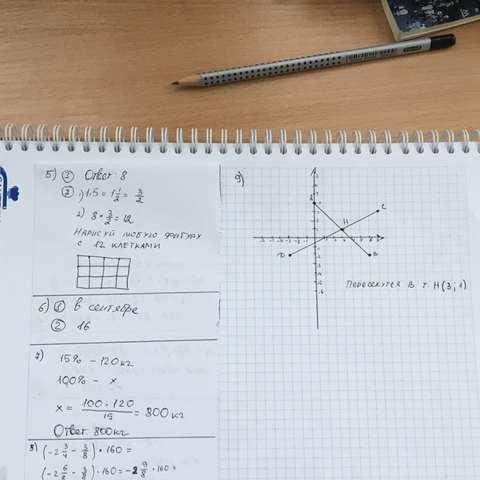 5) ① Ответ: 8
② 1) 1.5 = 1 1/2 = 3/2
2) 8 • 3/2 = 12
НАРИСУЙ ЛЮБУЮ ФИГУРУ
С 12 КЛЕТКАМИ
6) ① В сентябре
② 16
7) 15% – 120 кг
100% – x
x = 100 • 120 / 15 = 800 кг
Ответ: 800 кг
8) (-2 3/4 - 3/8) • 160 =
(-2 6/8 - 3/8) • 160 = -2 9/8 • 160 =
9)
C
H
D
B
Пересекутся в т. H (3; 1)